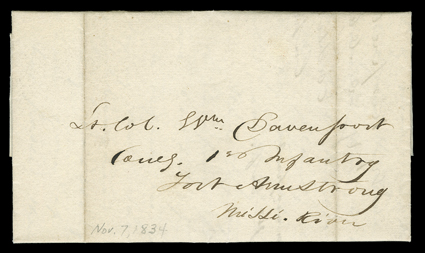 Lt. Col. Wm Davenport
Comdg. 1st Infantry
Fort Armstrong
Missi. River
Nov. 7, 1834